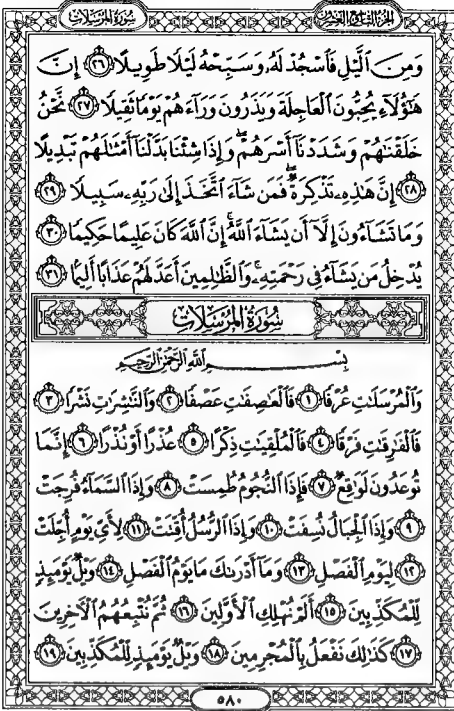 سُورَةُ المُرْسَلَات
الجُزْءُ التَّاسِعُ وَالعِشْرُونَ
وَمِنَ ٱلَّيْلِ فَٱسْجُدْ لَهُۥ وَسَبِّحْهُ لَيْلًا طَوِيلًا ٢٦ إِنَّ
هَٰٓؤُلَآءِ يُحِبُّونَ ٱلْعَاجِلَةَ وَيَذَرُونَ وَرَآءَهُمْ يَوْمًا ثَقِيلًا ٢٧ نَّحْنُ
خَلَقْنَٰهُمْ وَشَدَدْنَآ أَسْرَهُمْ ۖ وَإِذَا شِئْنَا بَدَّلْنَآ أَمْثَٰلَهُمْ تَبْدِيلًا
٢٨ إِنَّ هَٰذِهِۦ تَذْكِرَةٌ ۖ فَمَن شَآءَ ٱتَّخَذَ إِلَىٰ رَبِّهِۦ سَبِيلًا ٢٩
وَمَا تَشَآءُونَ إِلَّآ أَن يَشَآءَ ٱللَّهُ ۚ إِنَّ ٱللَّهَ كَانَ عَلِيمًا حَكِيمًا ٣٠
يُدْخِلُ مَن يَشَآءُ فِى رَحْمَتِهِۦ ۚ وَٱلظَّٰلِمِينَ أَعَدَّ لَهُمْ عَذَابًا أَلِيمًا ٣١
سُورَةُ المُرْسَلَات
بِسْمِ ٱللَّهِ ٱلرَّحْمَٰنِ ٱلرَّحِيمِ
وَٱلْمُرْسَلَٰتِ عُرْفًا ١ فَٱلْعَٰصِفَٰتِ عَصْفًا ٢ وَٱلنَّٰشِرَٰتِ نَشْرًا ٣
فَٱلْفَٰرِقَٰتِ فَرْقًا ٤ فَٱلْمُلْقِيَٰتِ ذِكْرًا ٥ عُذْرًا أَوْ نُذْرًا ٦ إِنَّمَا
تُوعَدُونَ لَوَٰقِعٌ ٧ فَإِذَا ٱلنُّجُومُ طُمِسَتْ ٨ وَإِذَا ٱلسَّمَآءُ فُرِجَتْ
٩ وَإِذَا ٱلْجِبَالُ نُسِفَتْ ١٠ وَإِذَا ٱلرُّسُلُ أُقِّتَتْ ١١ لِأَىِّ يَوْمٍ أُجِّلَتْ
١٢ لِيَوْمِ ٱلْفَصْلِ ١٣ وَمَآ أَدْرَىٰكَ مَا يَوْمُ ٱلْفَصْلِ ١٤ وَيْلٌ يَوْمَئِذٍ
لِّلْمُكَذِّبِينَ ١٥ أَلَمْ نُهْلِكِ ٱلْأَوَّلِينَ ١٦ ثُمَّ نُتْبِعُهُمُ ٱلْآخِرِينَ
١٧ كَذَٰلِكَ نَفْعَلُ بِٱلْمُجْرِمِينَ ١٨ وَيْلٌ يَوْمَئِذٍ لِّلْمُكَذِّبِينَ ١٩
٥٨٠